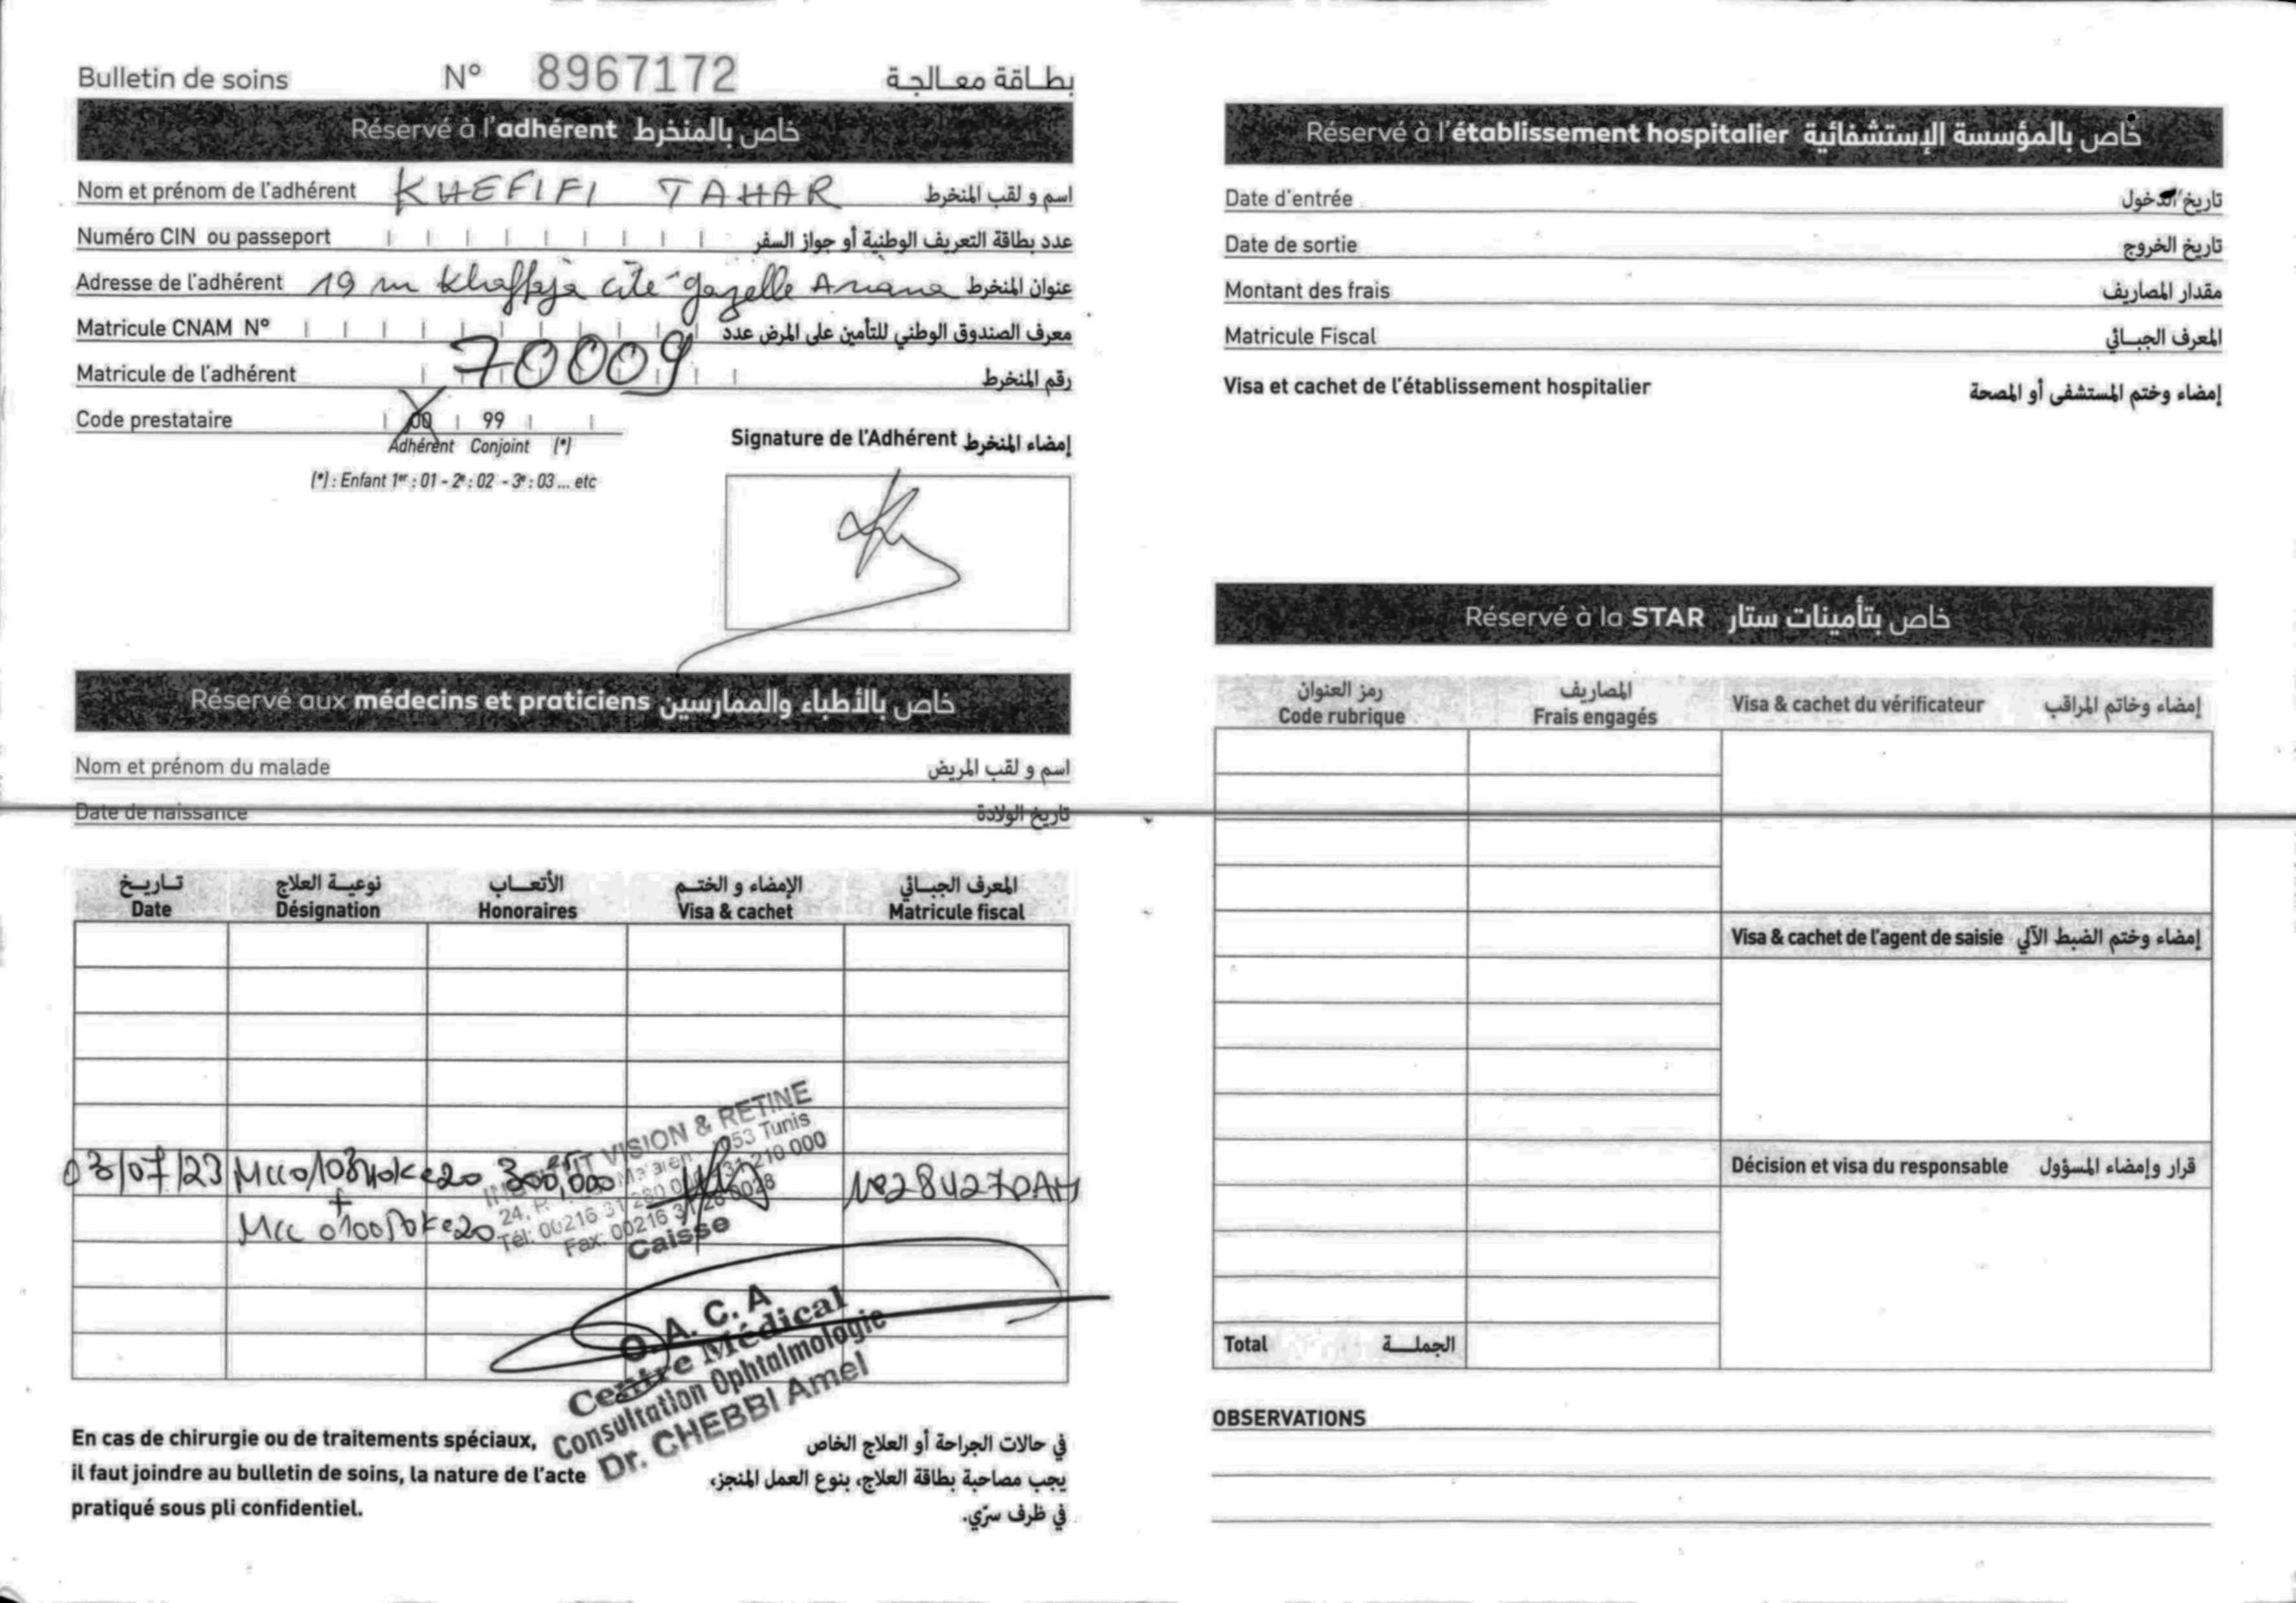 Bulletin de soins N° 8967172 بطاقة معالجة
Réservé à l'adhérent خاص بالمنخرط
Nom et prénom de l'adhérent KHEFIFI TAHAR اسم و لقب المنخرط
Numéro CIN ou passeport عدد بطاقة التعريف الوطنية أو جواز السفر
Adresse de l'adhérent 19 m Khaffaja cité gazelle Ariana عنوان المنخرط
Matricule CNAM N° معرف الصندوق الوطني للتأمين على المرض عدد
Matricule de l'adhérent 70009 رقم المنخرط
Code prestataire 00 99
Adhérent Conjoint (*)
(*) : Enfant 1er : 01 - 2e : 02 - 3e : 03 ... etc
Signature de l'Adhérent إمضاء المنخرط
Réservé aux médecins et praticiens خاص بالأطباء والممارسين
Nom et prénom du malade اسم و لقب المريض
Date de naissance تاريخ الولادة
تاريخ نوعية العلاج الأتعاب الإمضاء و الختم المعرف الجبائي
Date Désignation Honoraires Visa & cachet Matricule fiscal
03/07/23 300,000
+
VISION & RETINE
24, 1053 Tunis
Tél: 00216 31 280 0 31 210 000
Fax: 00216 31 28 0028
Caisse
O. A. C. A
Centre Médical
Consultation Ophtalmologie
Dr. CHEBBI Amel
En cas de chirurgie ou de traitements spéciaux,
il faut joindre au bulletin de soins, la nature de l'acte
pratiqué sous pli confidentiel.
في حالات الجراحة أو العلاج الخاص
يجب مصاحبة بطاقة العلاج، بنوع العمل المنجز،
في ظرف سرّي.
Réservé à l'établissement hospitalier خاص بالمؤسسة الإستشفائية
Date d'entrée تاريخ الدخول
Date de sortie تاريخ الخروج
Montant des frais مقدار المصاريف
Matricule Fiscal المعرف الجبائي
Visa et cachet de l'établissement hospitalier إمضاء وختم المستشفى أو المصحة
Réservé à la STAR خاص بتأمينات ستار
رمز العنوان المصاريف
Code rubrique Frais engagés Visa & cachet du vérificateur إمضاء وخاتم المراقب
Visa & cachet de l'agent de saisie إمضاء وختم الضبط الآلي
Décision et visa du responsable قرار وإمضاء المسؤول
Total الجملة
OBSERVATIONS